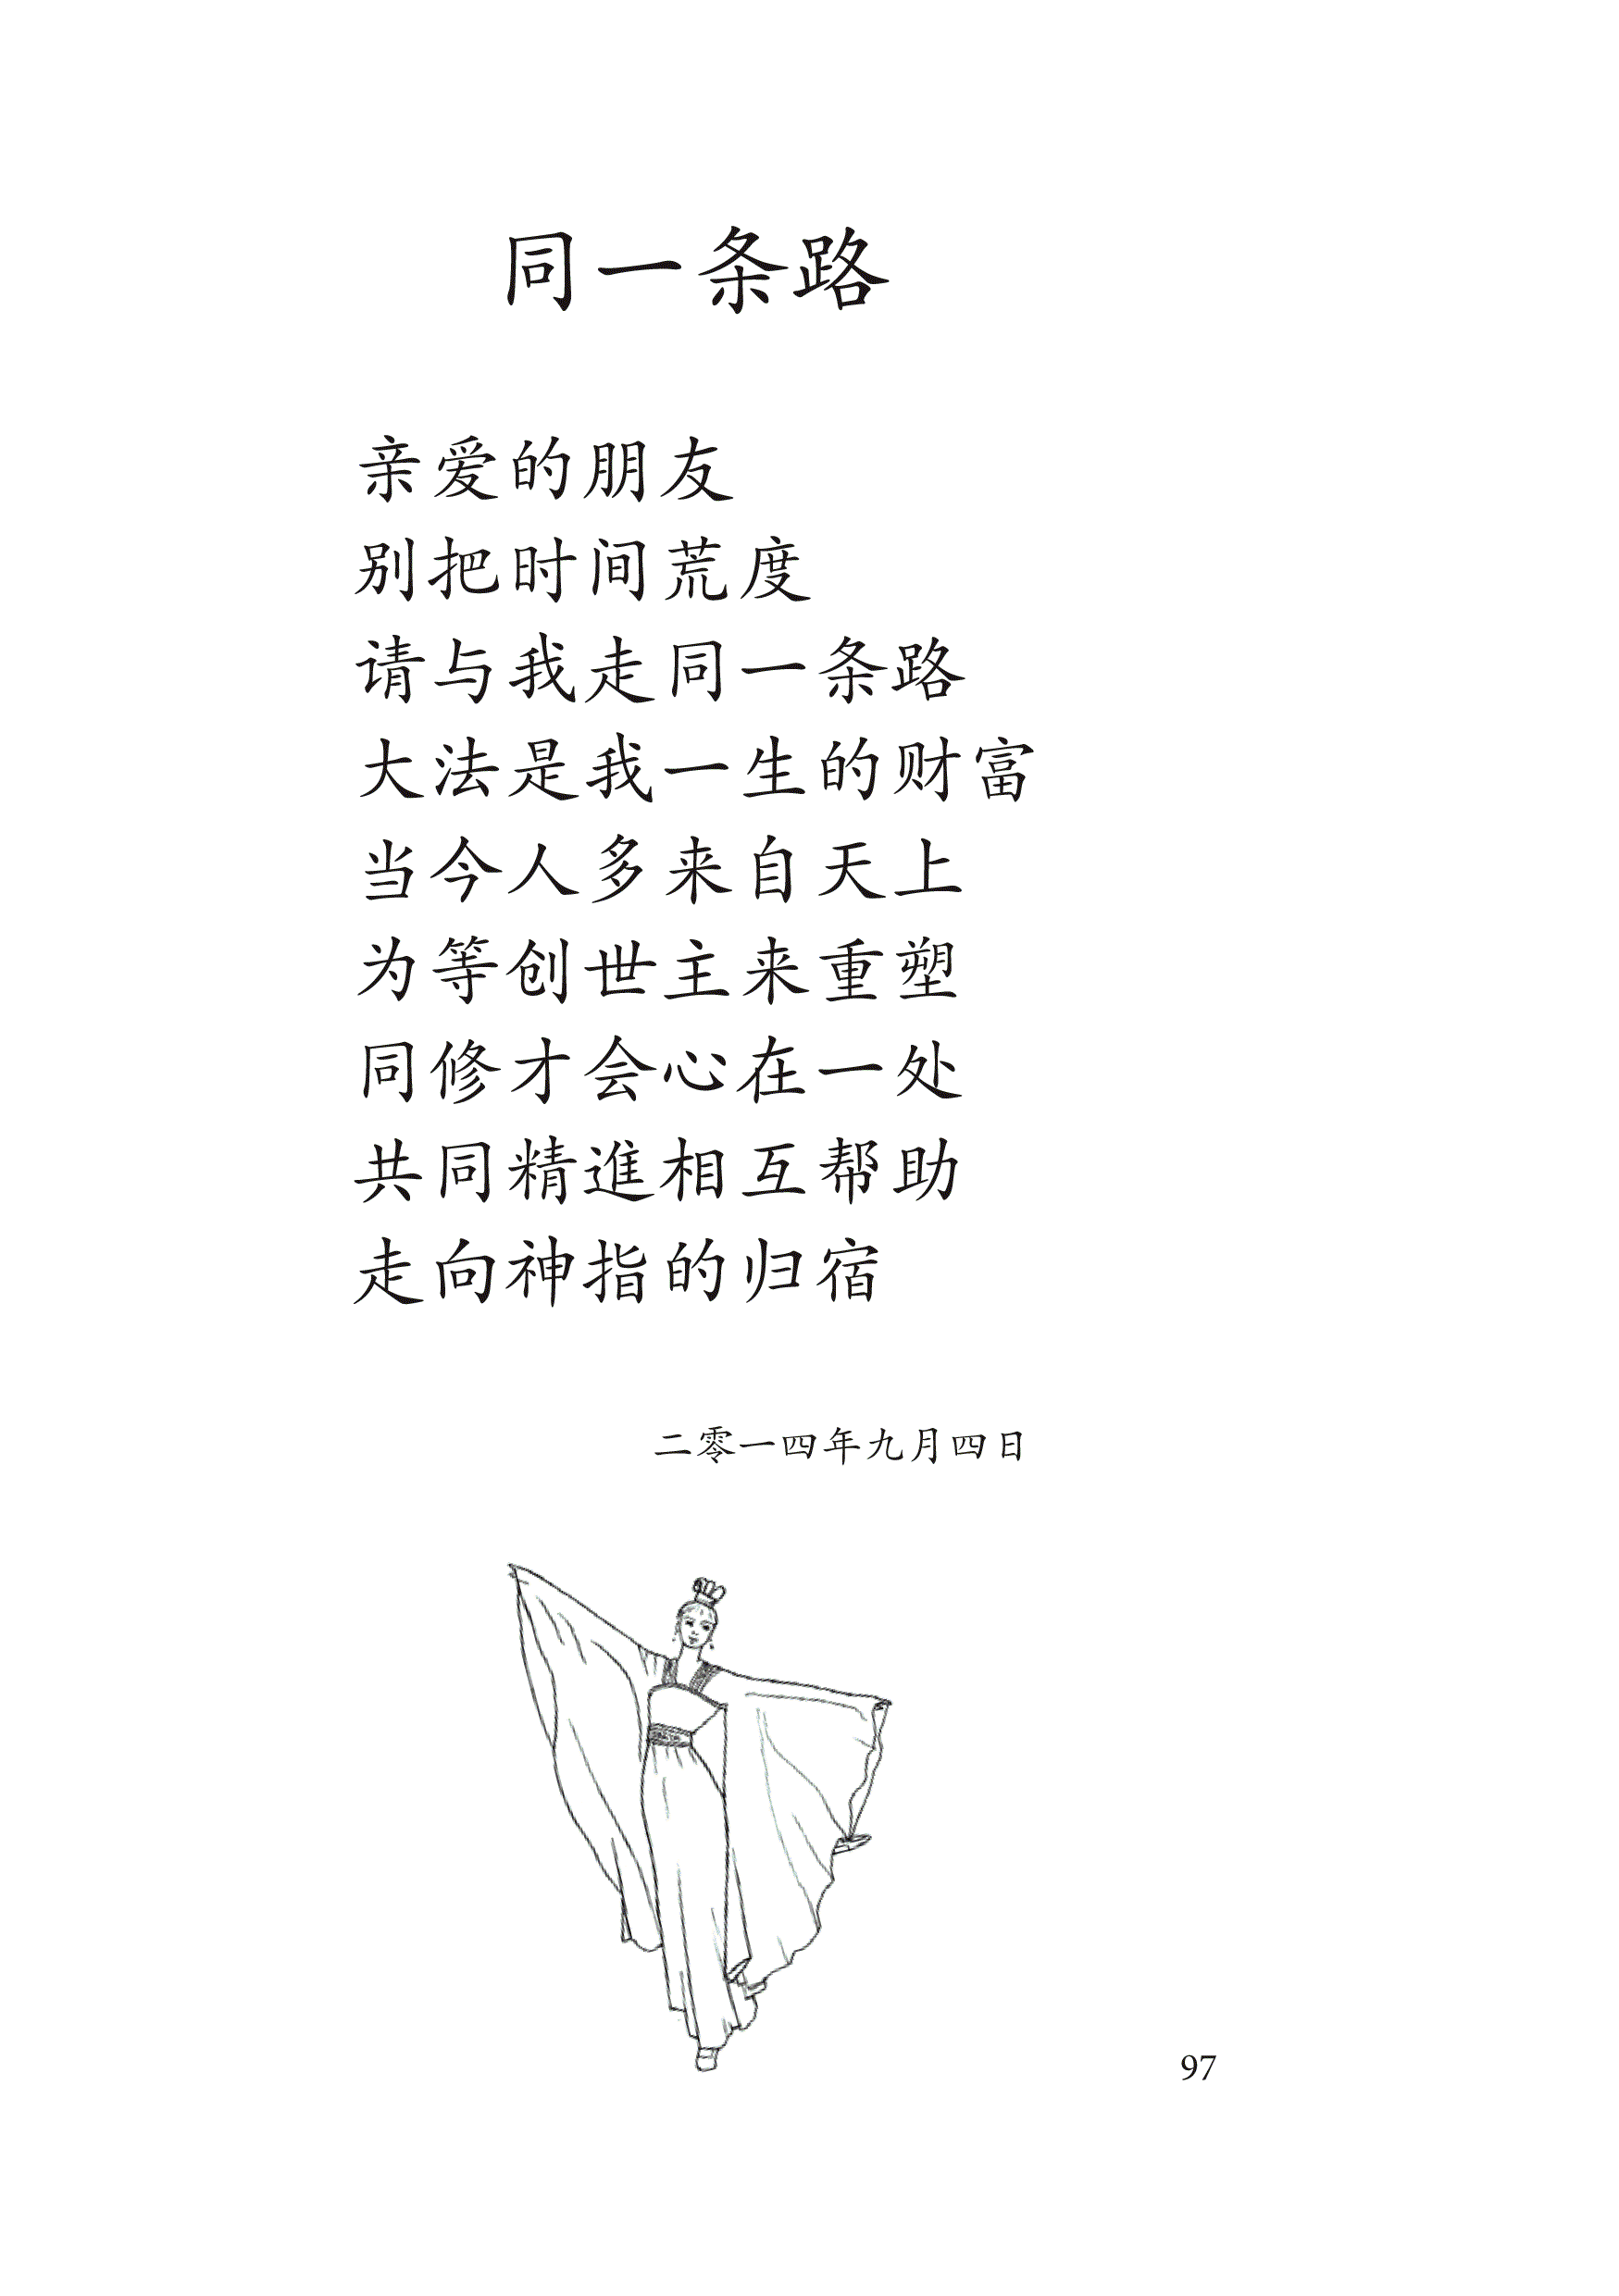 同一条路
亲爱的朋友
别把时间荒度
请与我走同一条路
大法是我一生的财富
当今人多来自天上
为等创世主来重塑
同修才会心在一处
共同精進相互帮助
走向神指的归宿
二零一四年九月四日
97